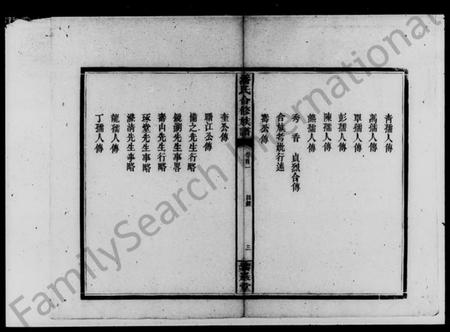 青孺人傳
萬孺人傳
單孺人傳
彭孺人傳
陳孺人傳
熊孺人傳
秀香貞烈合傳
合族耆統行述
壽公傳
氏合修族譜
卷首一
目錄
三
奎公傳
聯江公傳
備之先生行略
鏡湖先生事略
壽山先生行略
琢堂先生事略
漾清先生事略
龍孺人傳
丁孺人傳
FamilySearch International